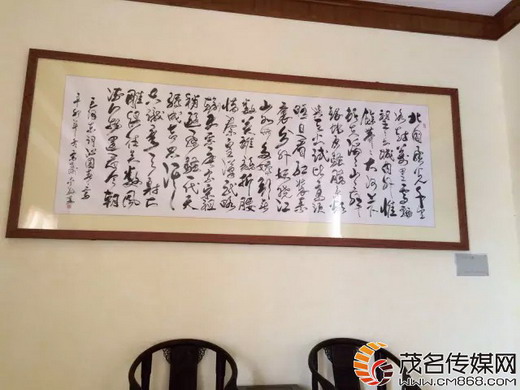 北国風光千里
冰封萬里雪飘
望长城内外惟
馀莽莽大河上下
顿失滔滔山舞
银蛇原驰腊象
欲与天公试比高须
晴日看红装素
裹分外妖娆江
山如此多娇引無
数英雄竞折腰
惜秦皇汉武略
输文采唐宗宋祖
稍逊風骚一代天
骄成吉思汗
只识弯弓射大
雕俱往矣数風
流人物还看今朝
毛泽东词沁园春雪
辛卯年
茂名传媒网
www.CM868.com